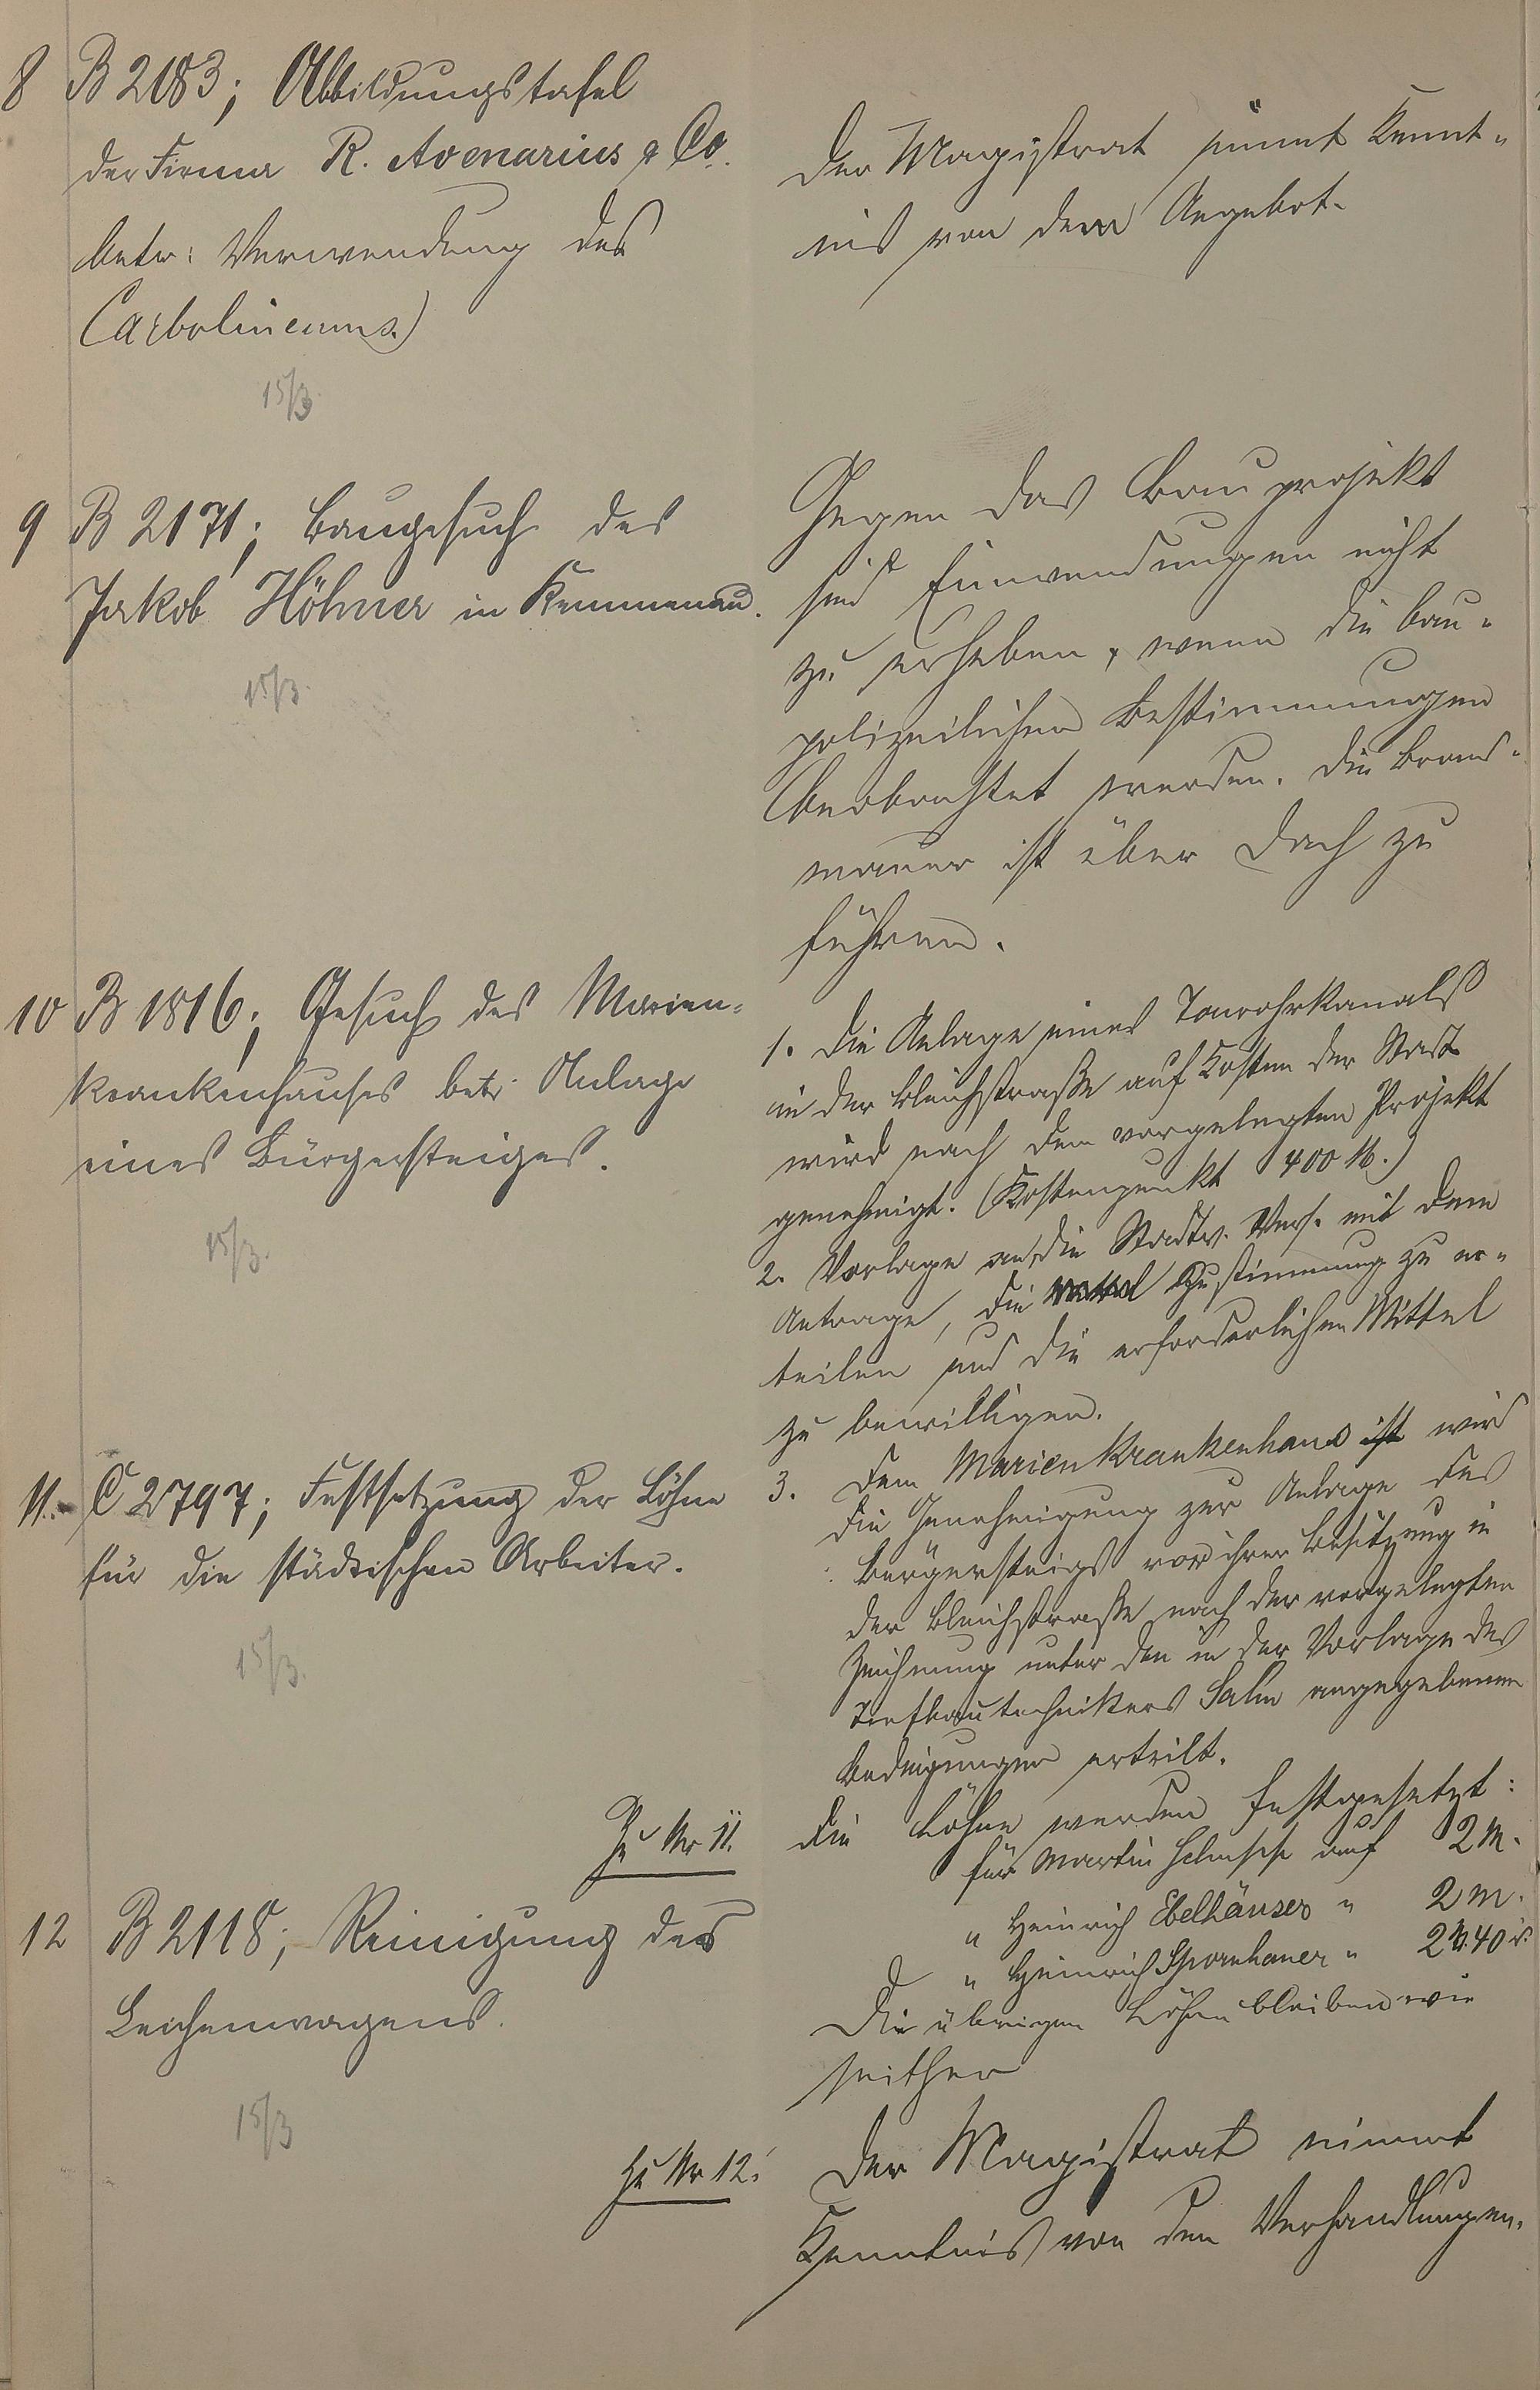 8 B 2183; Abbildungstafel
der Firma R. Avenarius & Co.
betr: Verwendung des
Carbolineums.)
15/3.
Der Magistrat nimmt Kennt-
nis von dem Angebot.
9 B 2171; Baugesuch des
Jakob Höhner in Kemmenau.
15/3.
Gegen das Bauprojekt
sind Einwendungen nicht
zu erheben, wenn die bau-
polizeilichen Bestimmungen
beobachtet werden. Die Brand-
mauer ist über Dach zu
führen.
10 B 1816; Gesuch des Marien-
krankenhauses betr. Anlage
eines Bürgersteiges.
15/3.
1. Die Anlage eines Tonrohrkanals
in der Bleichstraße auf Kosten der Stadt
wird nach dem vorgelegten Projekt
genehmigt. (Kostenpunkt 400 M.)
2. Vorlage an die Stadtv. Vers. mit dem
Antrage, die Zustimmung zu er-
teilen und die erforderlichen Mittel
zu bewilligen.
3. Dem Marienkrankenhaus ist wird
die Genehmigung zur Anlage des
Bürgersteigs vor ihrer Besitzung in
der Bleichstraße nach der vorgelegten
Zeichnung unter den in der Vorlage des
Tiefbautechnikers Salm angegebenen
Bedingungen erteilt.
11. C 2797; Festsetzung der Löhne
für die städtischen Arbeiter.
15/3.
Zu Nr 11.
Die Löhne werden festgesetzt:
für Martin auf 2 M.
" Heinrich Ebelhäuser " 2 M.
" Heinrich Spornhauer " 2 M. 40
Die übrigen Löhne bleiben wie
seither
12 B 2118; Reinigung des
Leichenwagens.
15/3
Zu Nr 12.
Der Magistrat nimmt
Kenntnis von den Verhandlungen.